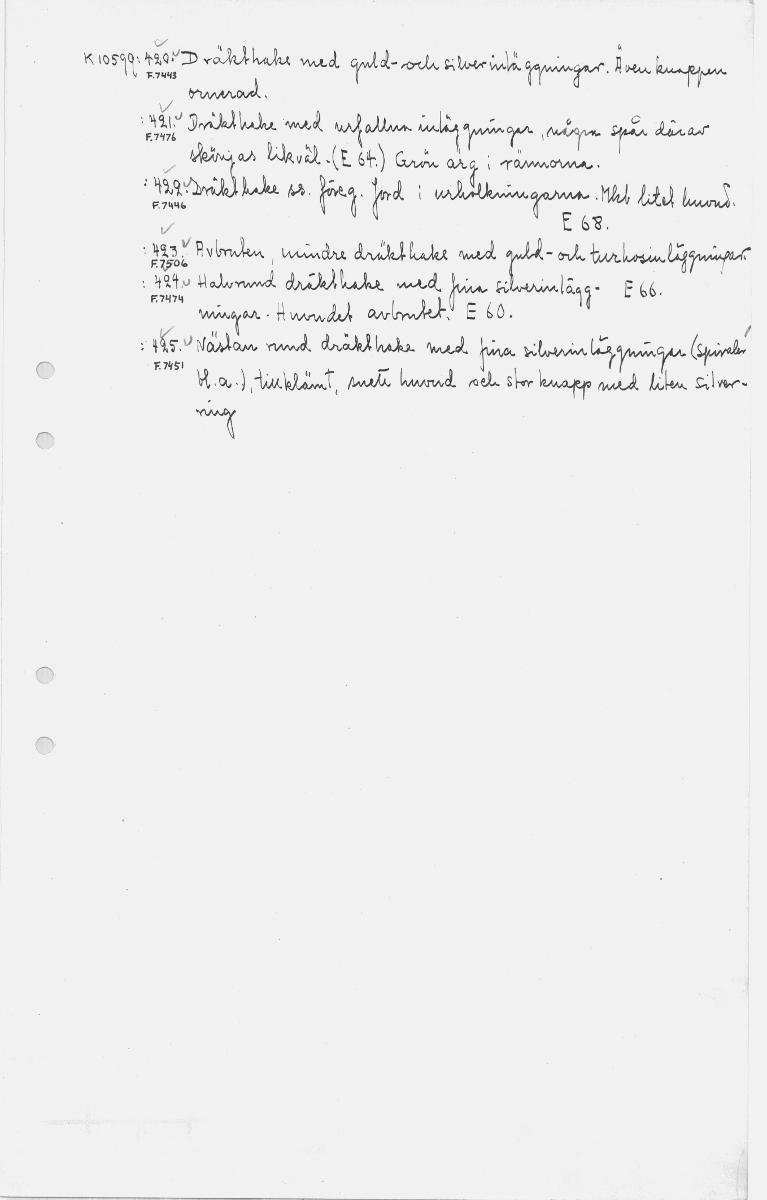 K 10599: 420. Dräkthake med guld- och silverinläggningar. Även knappen
F.7443
ornerad.
: 421. Dräkthake med urfallna inläggningar, några spår därav
F.7476
skönjas likväl. (E 64.) Grön ärg i rännorna.
: 422. Dräkthake ss. föreg. Jord i urholkningarna. Mkt litet huvud.
F.7446
E 68.
: 423. Avbruten, mindre dräkthake med guld- och turkosinläggningar.
F.7506
: 424. Halvrund dräkthake med fina silverinlägg- E 66.
F.7474
ningar. Huvudet avbrutet. E 60.
: 425. Nästan rund dräkthake med fina silverinläggningar (spiraler
F.7451
bl.a.), tillklämt, snett huvud och stor knapp med liten silver-
ring